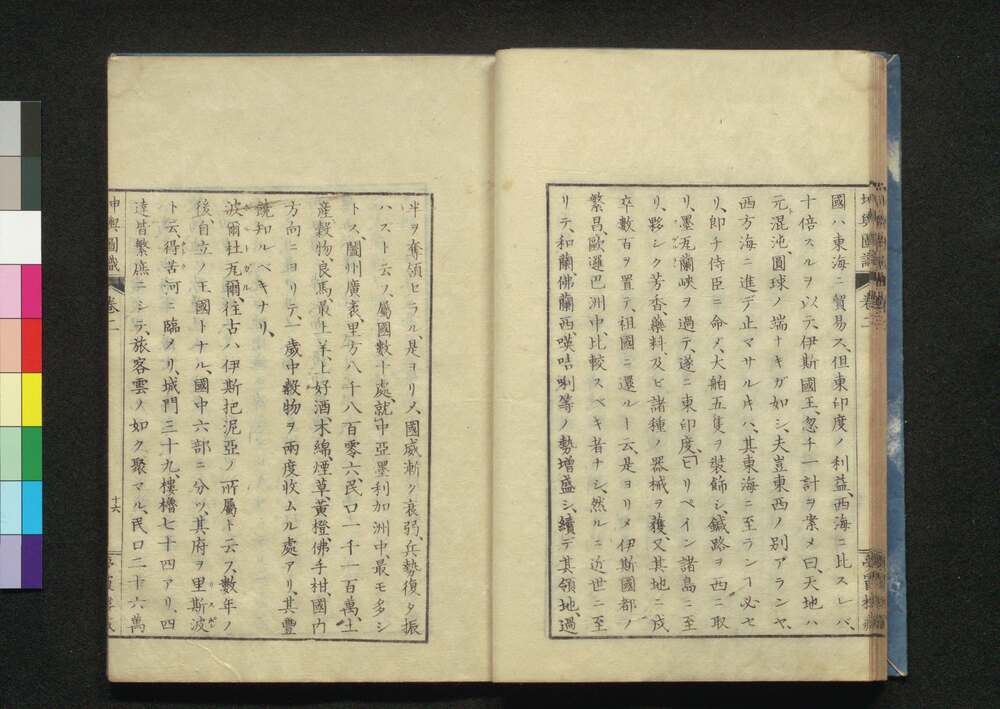 國ハ東海ニ貿易ス、但東印度ノ利益、西海ニ比スレバ、
十倍スルヲ以テ、伊斯國王、忽チ一計ヲ案メ曰、天地ハ
元混沌、圓球ノ端ナキガ如シ、夫豈東西ノ別アランヤ、
西方海ニ進デ止マサル𪜈ハ、其東海ニ至ランヿ必セ
リ、即チ侍臣ニ命メ、大舶五隻ヲ裝飾シ、鍼路ヲ西ニ取
リ、墨瓦蘭峽ヲ過テ、遂ニ東印度、ヒリペイン諸島ニ至
リ、夥シク芳香藥料、及ビ諸種ノ器械ヲ獲、又其地ニ戍
卒數百ヲ置テ、祖國ニ還ルト云、是ヨリメ伊斯國都ノ
繁昌、歐邏巴洲中、比較スベキ者ナシ、然ルニ近世ニ至
リテ、和蘭、佛蘭西、嘆咭唎等ノ勢增盛シ、續デ其領地、過
坤輿圖識 卷二
半ヲ奪領セラル、是ヨリメ、國威漸ク衰弱、兵勢復タ振
ハスト云フ、屬國數十處、就中亞墨利加洲中、最モ多シ
トス、闔州廣袤、里方八千八百零六、民口一千一百萬、土
產穀物、良馬、最上羊、上好酒、木綿、煙草、黃橙、佛手柑、國內
方向ニヨリテ、一歲中穀物ヲ兩度收ムル處アリ、其豐
饒知ルベキナリ、
波爾杜瓦爾、往古ハ伊斯把泥亞ノ所屬ト云フ、數年ノ
後、自立ノ王國トナル、國中六部ニ分ツ、其府ヲ里斯波
ト云、得苦河ニ臨メリ、城門三十九、樓櫓七十四アリ、四
達皆繁庶ニシテ、旅客雲ノ如ク聚マル、民口二十六萬
坤輿圖識 卷二 十六